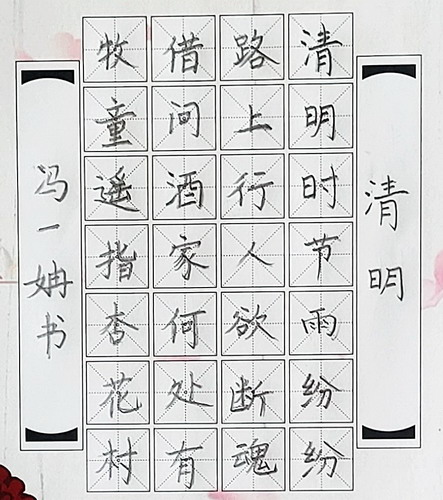 清明
清明时节雨纷纷
路上行人欲断魂
借问酒家何处有
牧童遥指杏花村
冯一姌书